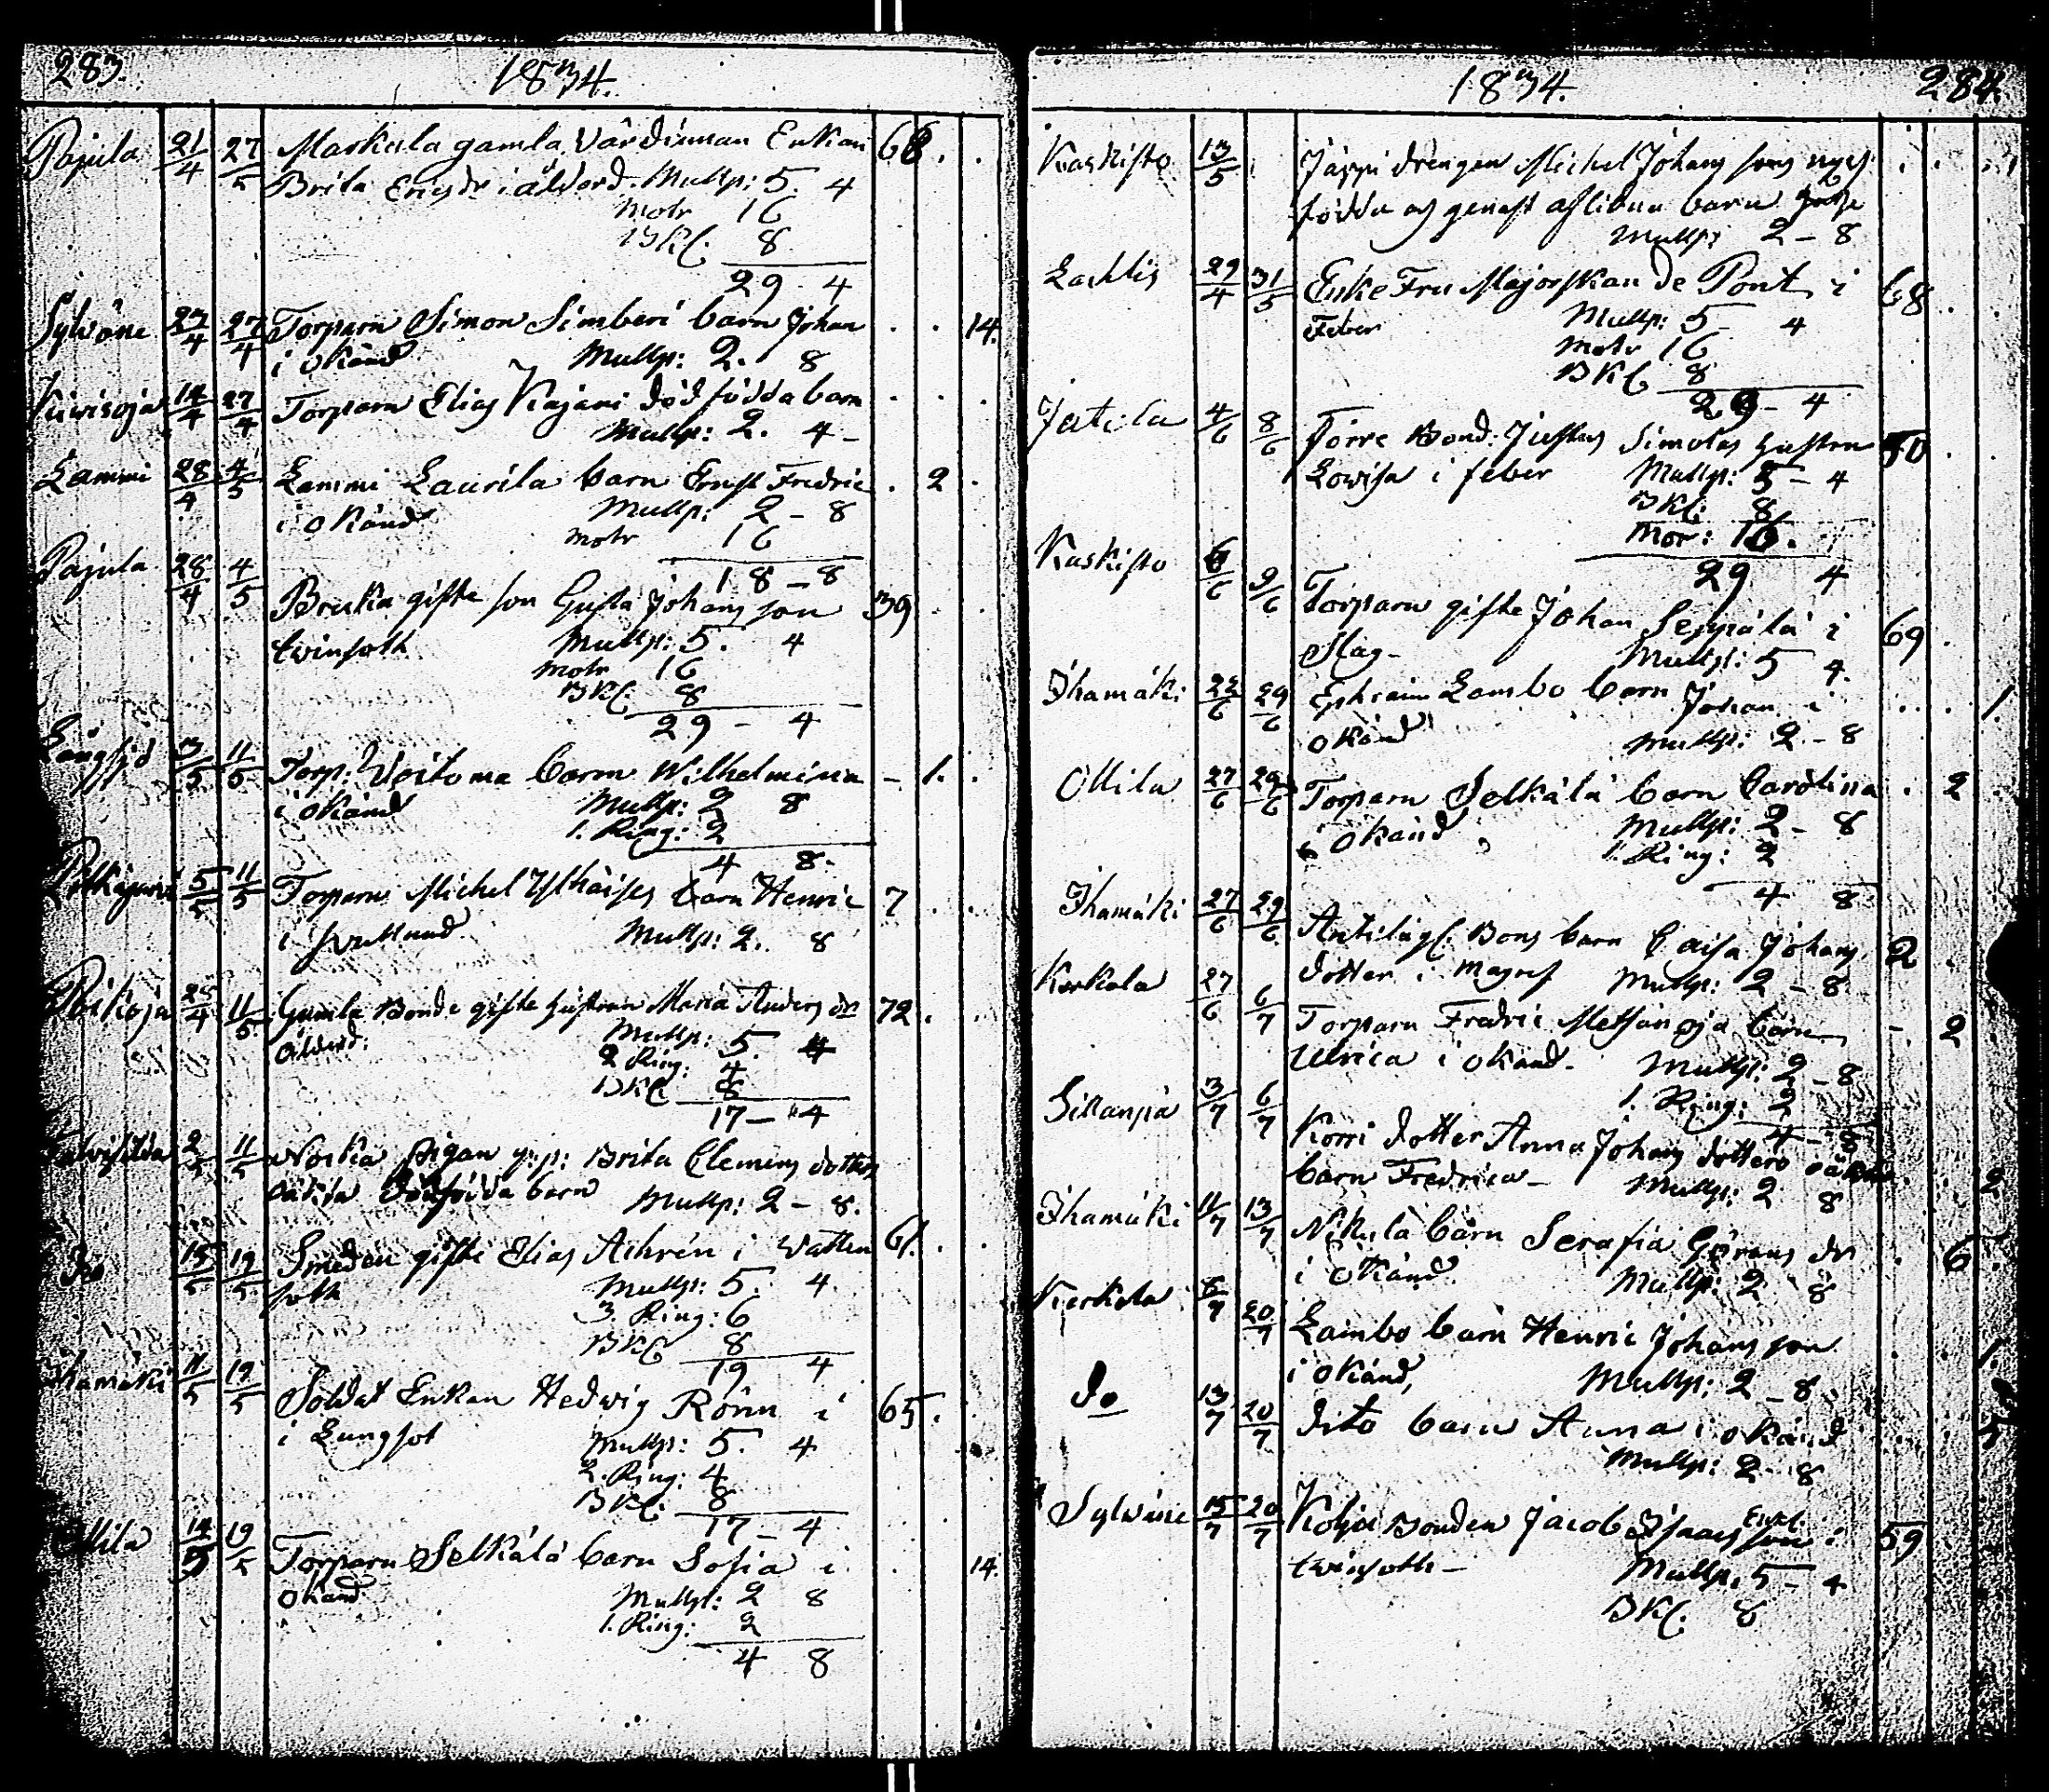 283.
1834.
Pajula 21/4 27/5 Markula gamla Värdinnan Enkan 68. .
Brita Ericsdr i ålderd. Mullp: 5. 4
Motr 16
BKl. 8
29 - 4
Sylväne 23/4 27/4 Torparn Simon Simberi barn Johan . . 14.
i okänd Mullp: 2. 8
Kuivisoja 14/4 27/4 Torparn Elias Kajani död födda barn . . .
Mullp: 2. 4 -
Lammi 28/4 4/5 Lammi Laurila barn Ernst Fredric . 2 .
i okänd Mullp: 2 - 8
Motr 16
18 - 8
Pajula 28/4 4/5 Bruka gifte son Gusta Johansson 39
twinsoth Mullp: 5. 4
Motr 16
BKl. 8
29 - 4
Långsjö 3/5 11/5 Torp: Woitoma barn Wilhelmina - 1. .
i okänd Mullp: 2 8
1. Ring: 2
4 8.
5/5 11/5 Torparn Michel barn Henric 7 . .
i Mullp: 2. 8
25/4 11/5 Gamla Bonde gifte hustrun Maria Anders dr 72. .
ålderd: Mullp: 5. 4
2 Ring: 4
BKl 8
17 - 4
2/5 11/5 Noska pigan Brita Clemens dotters
oäkta dödfödda barn Mullp: 2 - 8.
Do 15/5 19/5 Smeden gifte Elias Achrén i Watten 61. .
soth Mullp: 5. 4
3 Ring: 6
BKl 8
19 4
Ihamäki 11/5 19/5 Soldat Enkan Hedwig Rönn i 65.
i Lungsot Mullp: 5. 4
2. Ring: 4
BKl. 8
17 - 4
Ollila 14/5 19/5 Torparn Selkälä barn Sofia i . 14.
okänd Mullpl: 2 8
1. Ring: 2
4 8
1834.
284.
Kaskisto 13/5 Jäppi drengen Michel Johans sons nyss
födda och genast aflidna barn
Mullp: 2 - 8
Lachtis 29/4 31/5 Enke Fru Majorskan De Pont i 68 .
Feber Mullp: 5 - 4
Motr 16
BKl 8
29 - 4
Jutila 4/6 8/6 Förre Bond: Justus Simolas hustru 50 .
Lowisa i feber Mullp: 5 - 4
BKl: 8
Mor: 16.
29 4
Kaskisto 6/6 9/6 Torparn gifte Johan Seppälä i 69
Slag - Mullpl: 5 4.
Ihamäki 22/6 29/6 Ephraim Lambo barn Johan i . . 1.
okänd Mullp: 2 - 8
Ollila 27/6 29/6 Torparn Selkälä barn Carolina . 2 .
i okänd Mullp: 2 - 8
1. Ring: 2
4 8
Ihamäki 27/6 29/6 Antila gl. Bons barn Caisa Johans 2
dotter i Mullp: 2 - 8
Korkola 27/6 6/7 Torparn Fredric Metsänoja barn - 2
Ulrica i okänd - Mullpl: 2 - 8
1. Ring: 2
4 - 8
Sillanpä 3/7 6/7 Korri dotter Anna Johans dotters oäkta
barn Fredrica - Mullp: 2 8 2
Ihamäki 11/7 13/7 Nikula barn Serafia Görans dr . 6 .
i okänd Mullp: 2 8
Korkola 8/7 20/7 Lambo barn Henric Johans son . . 1.
i okänd, Mullp: 2 - 8
do 13/7 20/7 Dito barn Anna i okänd . . 5
Mullp: 2 - 8
Sylwäne 15/7 20/7 Kolja Bonden Jacob Isaacs son i 59
Enkl.
twinsoth - Mullp. 5 - 4
BKl. 8